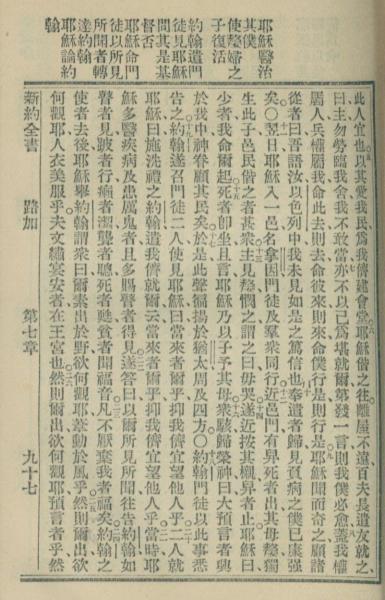 耶穌醫治
其僕
使嫠婦之
子復活
約翰遣門
徒見耶穌
問其是基
督否
耶穌命門
徒以所見
所聞者轉
達約翰
耶穌論約
翰
此人宜也以其愛我民爲我儕建會堂耶穌偕之往離屋不遠百夫長遣友就之
曰主勿勞臨我舍我不敢當亦不以己爲堪就爾第發一言則我僕必愈蓋我權
屬人兵權屬我命此去則去命彼來則來命僕行是則行是耶穌聞而奇之顧諸
從者曰吾語汝以色列中我未見如是之篤信也奉遣者歸見負病之僕已康強
矣〇翌日耶穌入一邑名拿因門徒及羣衆同行近邑門有舁死者出其母嫠獨
生此子邑民偕之者甚衆主見嫠憫之謂之曰毋哭遂近按其櫬舁者止耶穌曰
少者我命爾起死者卽坐且言耶穌乃以子予其母衆駭歸榮神曰大預言者興
於我中神眷顧其民矣於是此聲徧揚於猶太周及四方〇約翰門徒以此事悉
告之約翰遂召門徒二人使見耶穌曰當來者爾乎抑我儕宜望他人乎二人就
耶穌曰施洗禮之約翰遣我儕就爾云當來者爾乎抑我儕宜望他人乎當時耶
穌多醫疾病及患厲鬼者且多賜瞽者得見遂答曰以爾所見所聞往告約翰如
瞽者見跛者行癩者潔聾者聰死者甦貧者聞福音凡不厭棄我者福矣約翰之
使者去後耶穌舉約翰謂衆曰爾素出於野欲何觀耶葦動於風乎然則爾出欲
何觀耶人衣美服乎夫文繡宴安者在王宮也然則爾出欲何觀耶預言者乎然
新約全書 路加 第七章 九十七